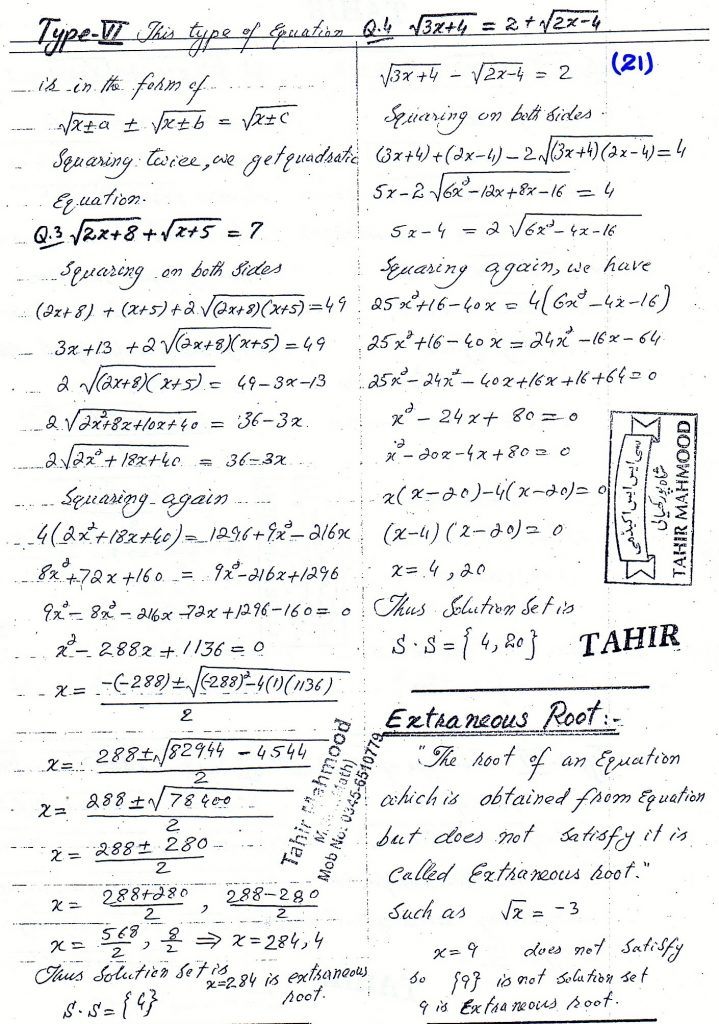 Type-VI This type of Equation
is in the form of
√x±a ± √x±b = √x±c
Squaring twice, we get quadratic
Equation.
Q.3 √2x+8 + √x+5 = 7
Squaring on both sides
(2x+8) + (x+5) + 2√(2x+8)(x+5) = 49
3x+13 + 2√(2x+8)(x+5) = 49
2√(2x+8)(x+5) = 49-3x-13
2√2x²+8x+10x+40 = 36-3x
2√2x²+18x+40 = 36-3x
Squaring again
4(2x²+18x+40) = 1296+9x²-216x
8x²+72x+160 = 9x²-216x+1296
9x²-8x²-216x-72x+1296-160 = 0
x²-288x+1136 = 0
x = -(-288)±√(-288)²-4(1)(1136) / 2
x = 288±√82944-4544 / 2
x = 288±√78400 / 2
x = 288±280 / 2
x = 288+280 / 2 , 288-280 / 2
x = 568/2 , 8/2 ⇒ x = 284, 4
Thus Solution Set is
x=284 is extraneous root.
S.S = {4}
Tahir Mahmood
Mob No: 0345-6510779
(21)
Q.4 √3x+4 = 2+√2x-4
√3x+4 - √2x-4 = 2
Squaring on both sides.
(3x+4)+(2x-4)-2√(3x+4)(2x-4) = 4
5x-2√6x²-12x+8x-16 = 4
5x-4 = 2√6x²-4x-16
Squaring again, we have
25x²+16-40x = 4(6x²-4x-16)
25x²+16-40x = 24x²-16x-64
25x²-24x²-40x+16x+16+64 = 0
x²-24x+80 = 0
x²-20x-4x+80 = 0
x(x-20)-4(x-20) = 0
(x-4)(x-20) = 0
x = 4, 20
Thus Solution Set is
S.S = {4, 20}
TAHIR
TAHIR MAHMOOD
Extraneous Root:-
"The root of an Equation
which is obtained from Equation
but does not satisfy it is
Called Extraneous root."
Such as √x = -3
x=9 does not Satisfy
so {9} is not solution set
9 is Extraneous root.